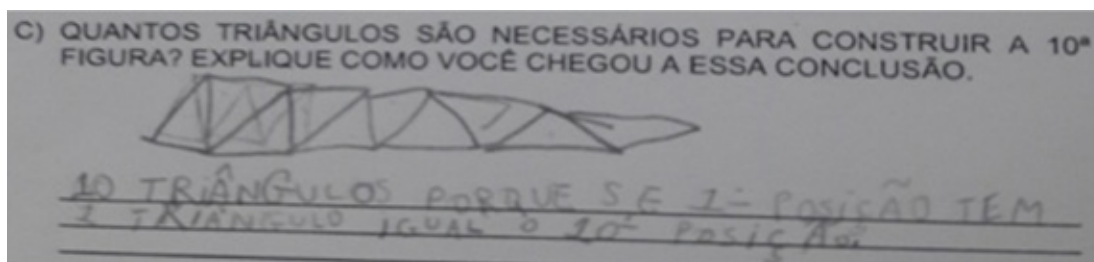 C) QUANTOS TRIÂNGULOS SÃO NECESSÁRIOS PARA CONSTRUIR A 10ª
FIGURA? EXPLIQUE COMO VOCÊ CHEGOU A ESSA CONCLUSÃO.
10 TRIÂNGULOS PORQUE SE 1ª POSIÇÃO TEM
1 TRIANGULO IGUAL O 10ª POSIÇÃO.